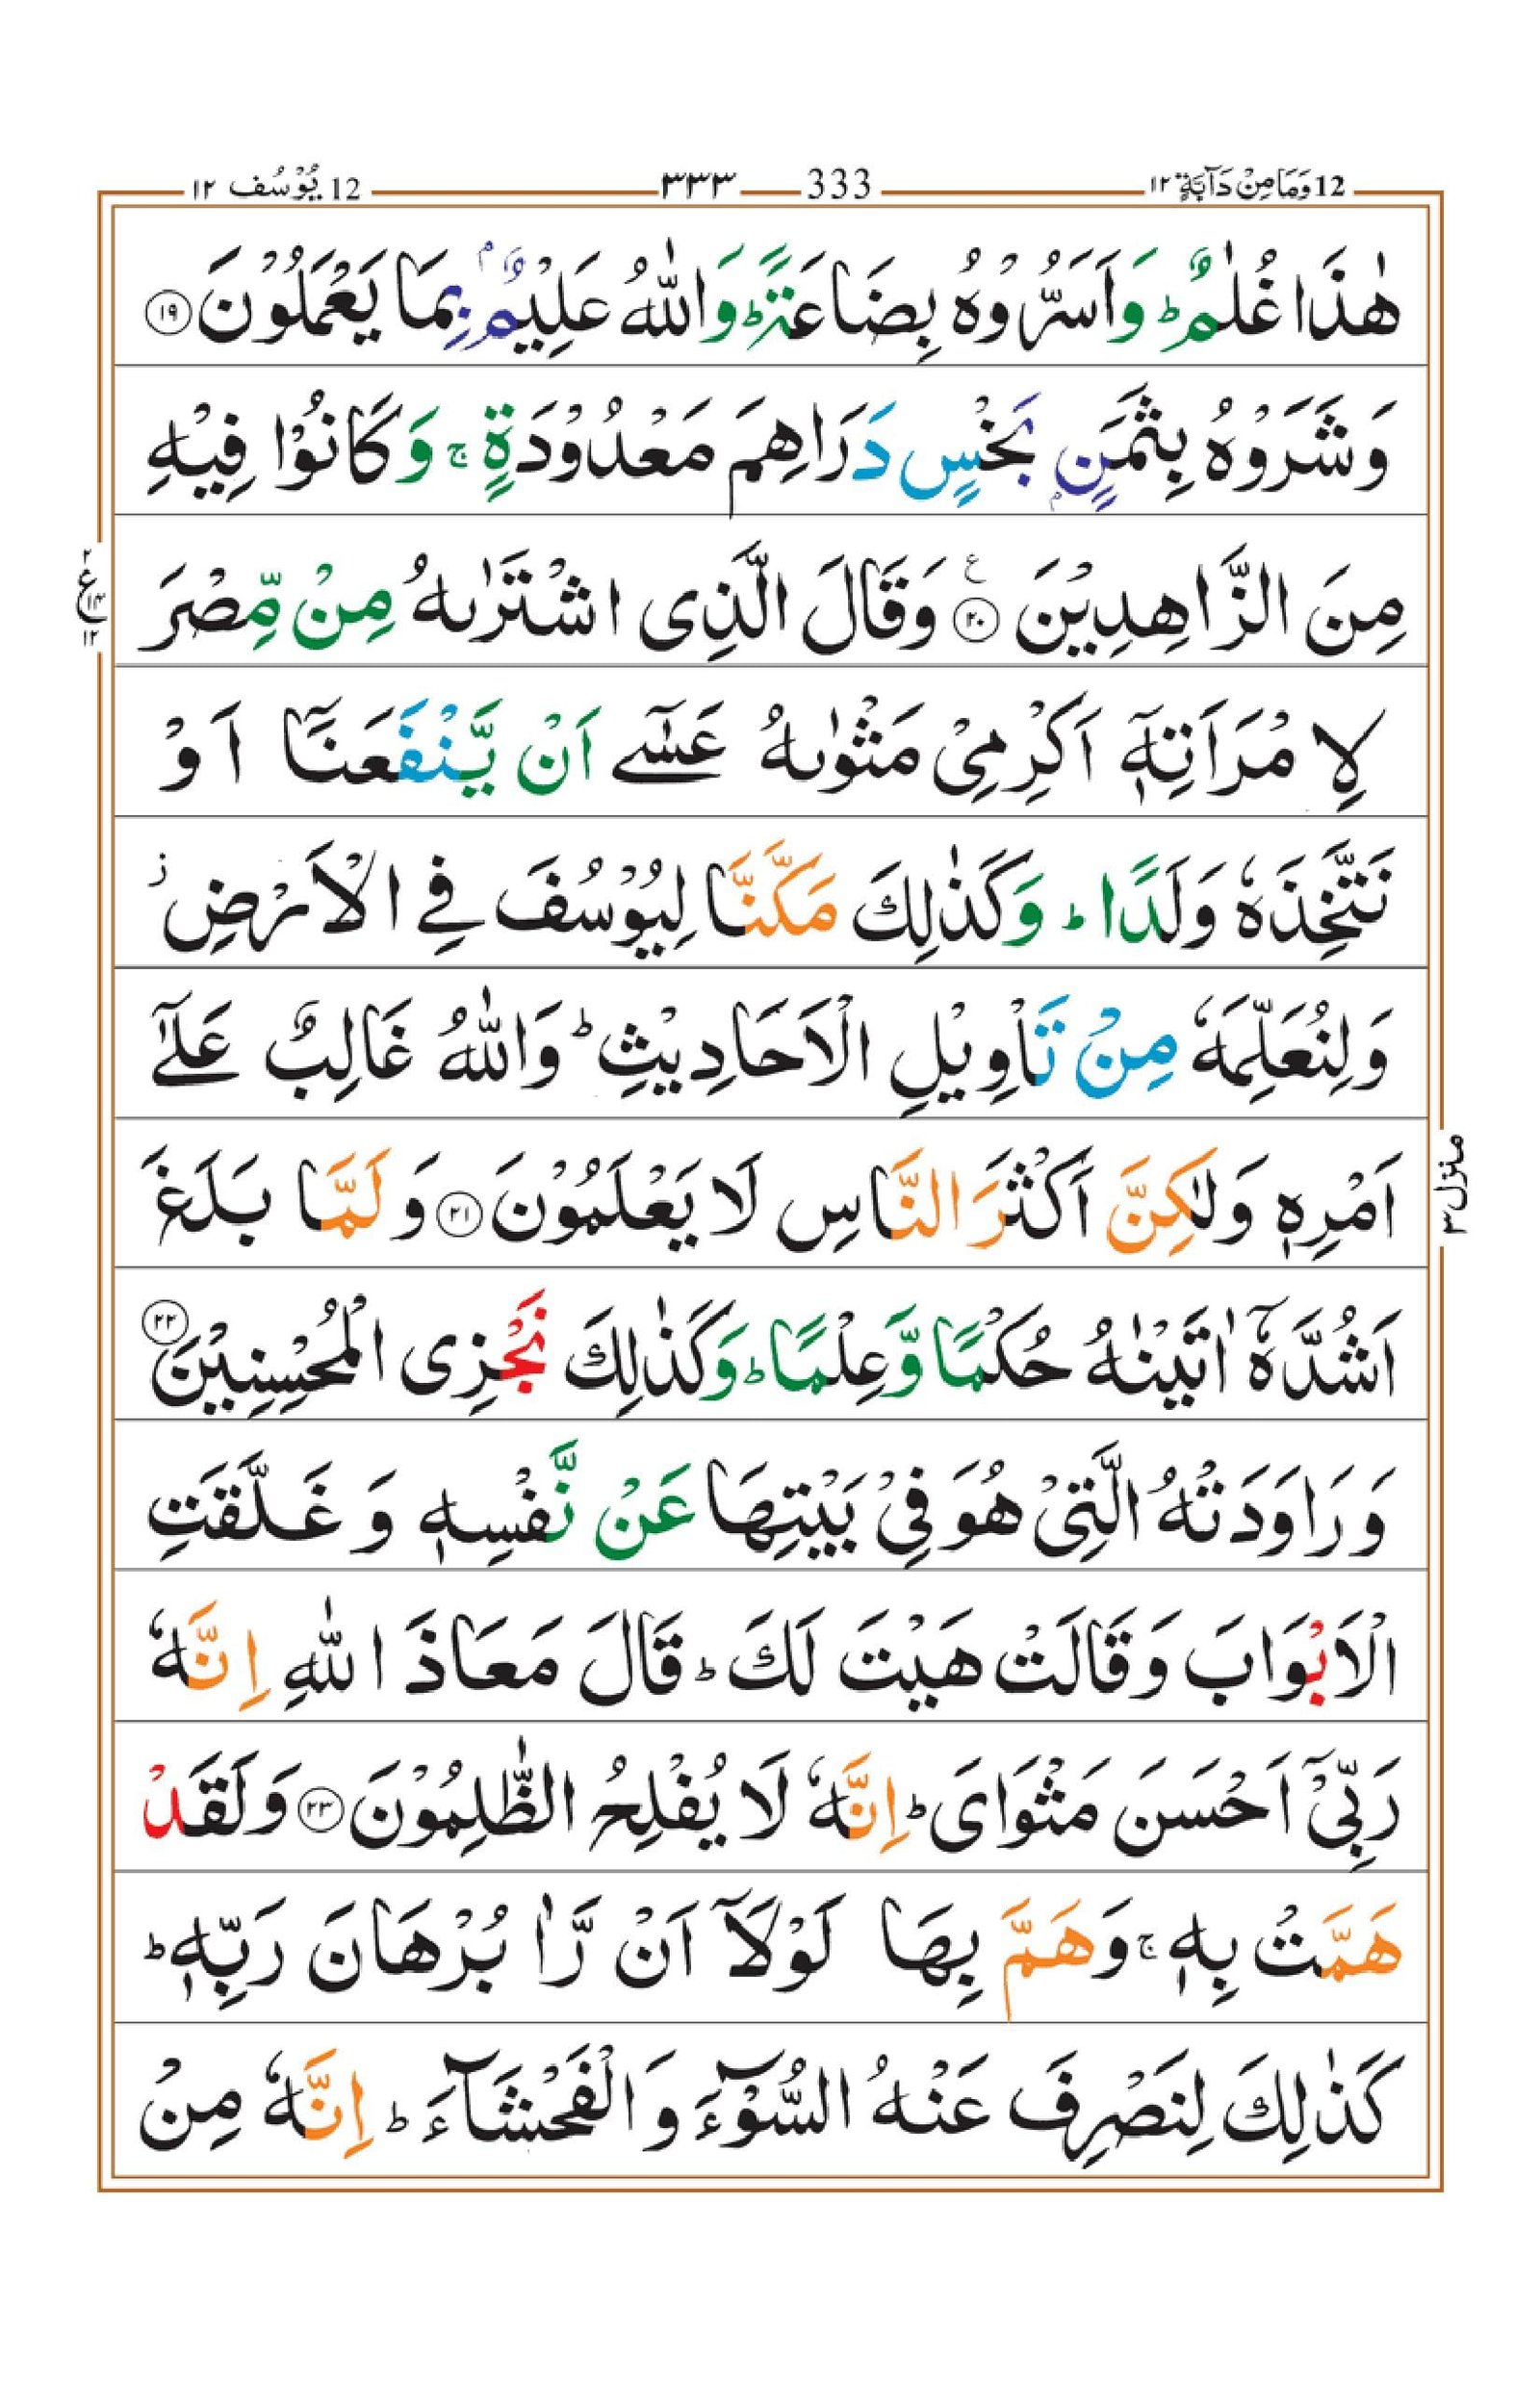 12 وَمَا مِنْ دَآبَّةٍ ۱۲ 333 ۳۳۳ 12 یُوْسُف ۱۲
هٰذَا غُلٰمٌ ؕ وَاَسَرُّوْهُ بِضَاعَةً ؕ وَاللّٰهُ عَلِیْمٌۢ بِمَا یَعْمَلُوْنَ ۱۹
وَشَرَوْهُ بِثَمَنٍۭ بَخْسٍ دَرَاهِمَ مَعْدُوْدَةٍ ۚ وَكَانُوْا فِیْهِ
مِنَ الزَّاهِدِیْنَ ۲۰ وَقَالَ الَّذِی اشْتَرٰىهُ مِنْ مِّصْرَ
لِا مْرَاَتِهٖۤ اَكْرِمِیْ مَثْوٰىهُ عَسٰۤی اَنْ یَّنْفَعَنَاۤ اَوْ
نَتَّخِذَهٗ وَلَدًا ؕ وَكَذٰلِكَ مَكَّنَّا لِیُوْسُفَ فِی الْاَرْضِ ؗ
وَلِنُعَلِّمَهٗ مِنْ تَاْوِیْلِ الْاَحَادِیْثِ ؕ وَاللّٰهُ غَالِبٌ عَلٰۤی
اَمْرِهٖ وَلٰكِنَّ اَكْثَرَ النَّاسِ لَا یَعْلَمُوْنَ ۲۱ وَلَمَّا بَلَغَ
اَشُدَّهٗۤ اٰتَیْنٰهُ حُكْمًا وَّعِلْمًا ؕ وَكَذٰلِكَ نَجْزِی الْمُحْسِنِیْنَ ۲۲
وَرَاوَدَتْهُ الَّتِیْ هُوَ فِیْ بَیْتِهَا عَنْ نَّفْسِهٖ وَغَلَّقَتِ
الْاَبْوَابَ وَقَالَتْ هَیْتَ لَكَ ؕ قَالَ مَعَاذَ اللّٰهِ اِنَّهٗ
رَبِّیْۤ اَحْسَنَ مَثْوَایَ ؕ اِنَّهٗ لَا یُفْلِحُ الظّٰلِمُوْنَ ۲۳ وَلَقَدْ
هَمَّتْ بِهٖ ۚ وَهَمَّ بِهَا لَوْلَاۤ اَنْ رَّاٰ بُرْهَانَ رَبِّهٖ ؕ
كَذٰلِكَ لِنَصْرِفَ عَنْهُ السُّوْٓءَ وَالْفَحْشَآءَ ؕ اِنَّهٗ مِنْ
۲ ع ۱۴ ۱۲
منزل ۳